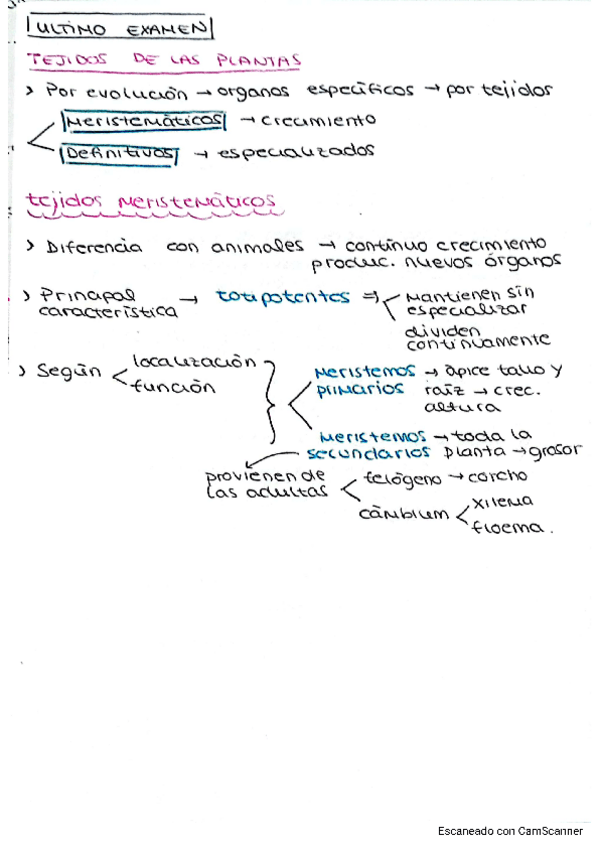 ULTIMO EXAMEN
TEJIDOS DE LAS PLANTAS
> Por evolución → organos específicos → por tejidos
Meristemáticos → crecimiento
Definitivos → especializados
tejidos Meristemáticos
> Diferencia con animales → continuo crecimiento
produc. nuevos órganos
> Principal característica → totipotentes ⇒ Mantienen sin especializar
dividen continuamente
> Según localización
función
Meristemos primarios → ápice tallo y raíz → crec. altura
Meristemos secundarios → toda la planta → grosor
provienen de las adultas
felógeno → corcho
cámbium xilema
floema.
Escaneado con CamScanner